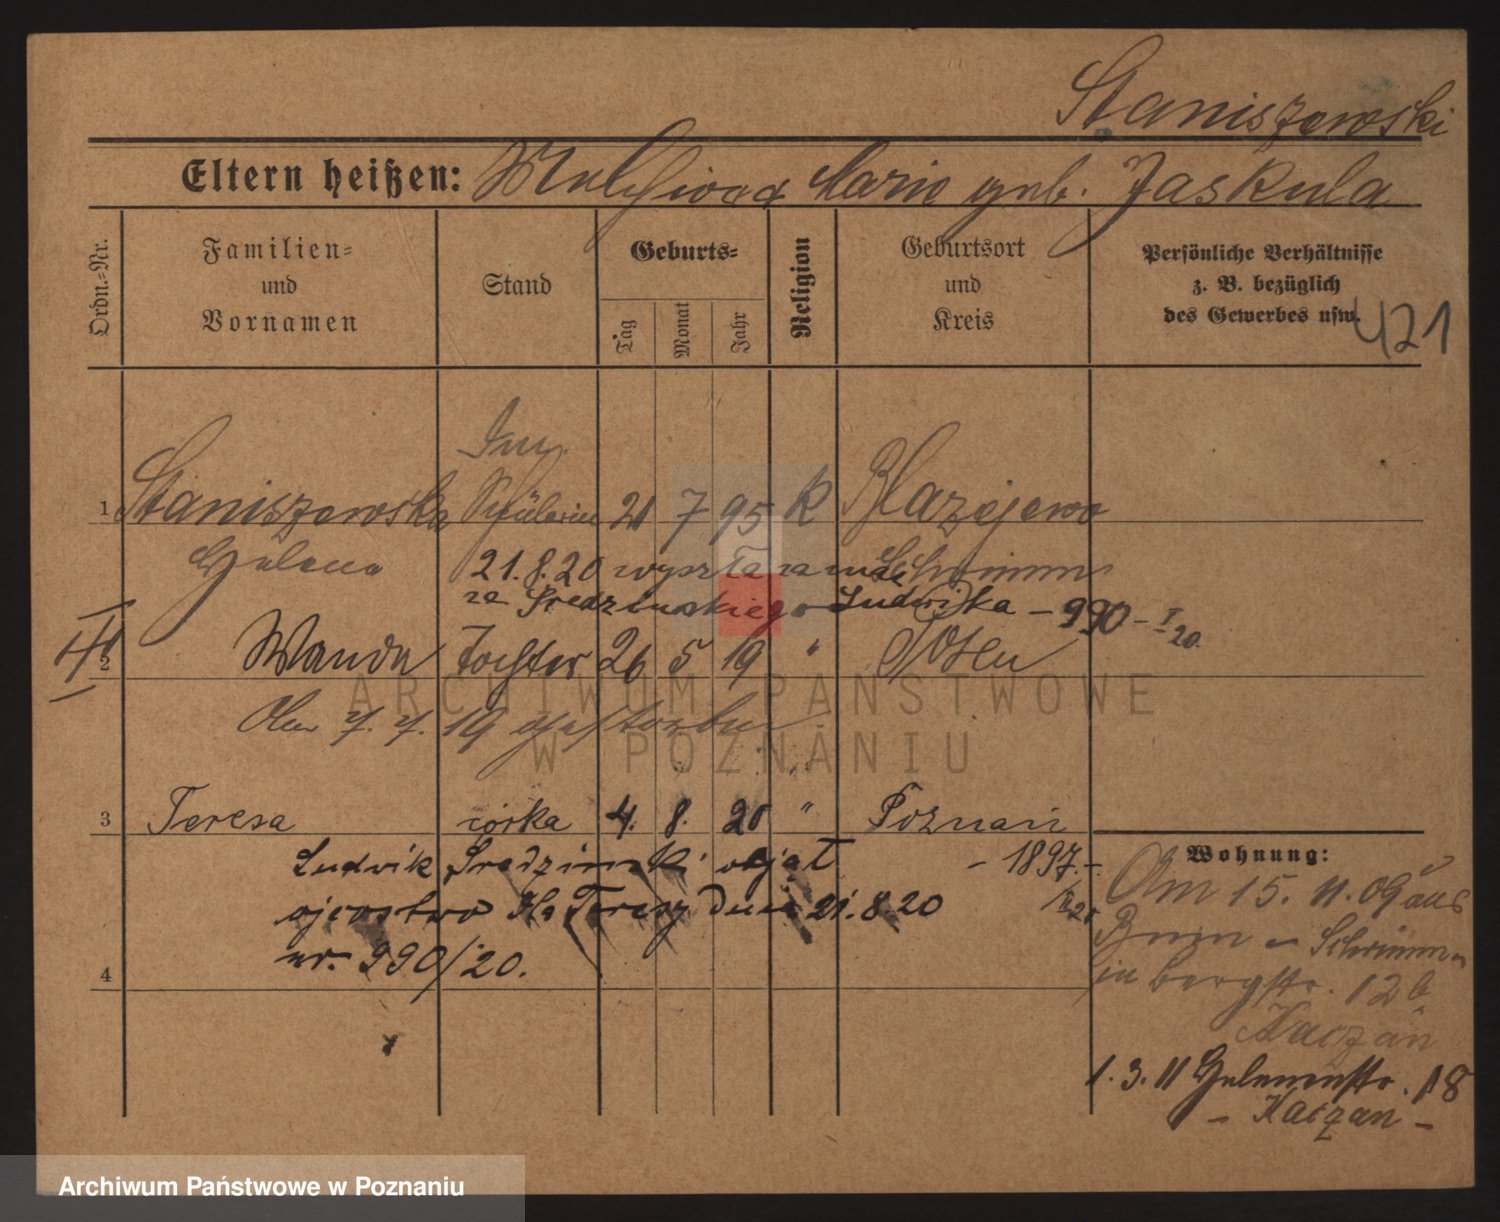 Staniszewski
Eltern heißen: Melchior & Marie geb. Jaskula
Ordn.=Nr.
Familien=
und
Vornamen
Stand
Geburts=
Tag
Monat
Jahr
Religion
Geburtsort
und
Kreis
Persönliche Verhältnisse
z. B. bezüglich
des Gewerbes usw.
421
1 Staniszewska Schülerin 21 7 95 K Blazejewo
Helene
Schrimm
21.8.20 wyszła za mąż
za Średzinskiego Ludwika – 990 – I/20.
2 Wanda Tochter 26 5 19 " Posen
Am 7. 7. 19 gestorben
3 Teresa córka 4. 8. 20 " Poznań
– 1897. –
Ludwik Sredzinski objął
ojcostwo Teresy dnia 21.8.20
nr. 990/20.
4
Wohnung:
Am 15. 11. 09 aus
Bnin – Schrimm
in Bergstr. 12 b
Kaczan
1. 3. 11 Helenenstr. 18
– Kaczan –
ARCHIWUM PAŃSTWOWE
W POZNANIU
Archiwum Państwowe w Poznaniu